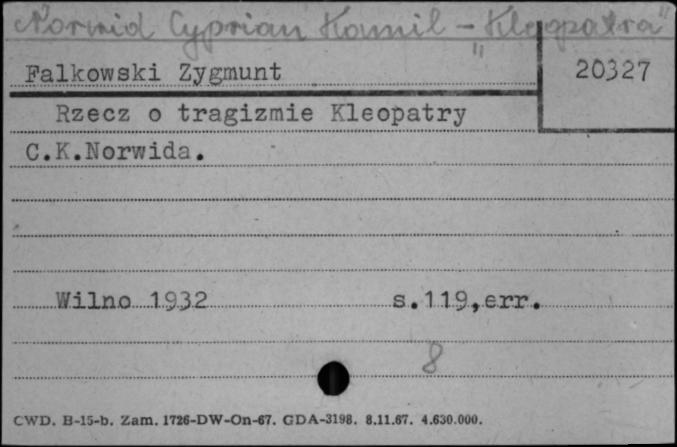 Norwid Cyprian Kamil - "Kleopatra"
Falkowski Zygmunt 20327
Rzecz o tragizmie Kleopatry
C.K.Norwida.
Wilno 1932 s.119,err.
8
CWD. B-15-b. Zam. 1726-DW-On-67. GDA-3198. 8.11.67. 4.630.000.